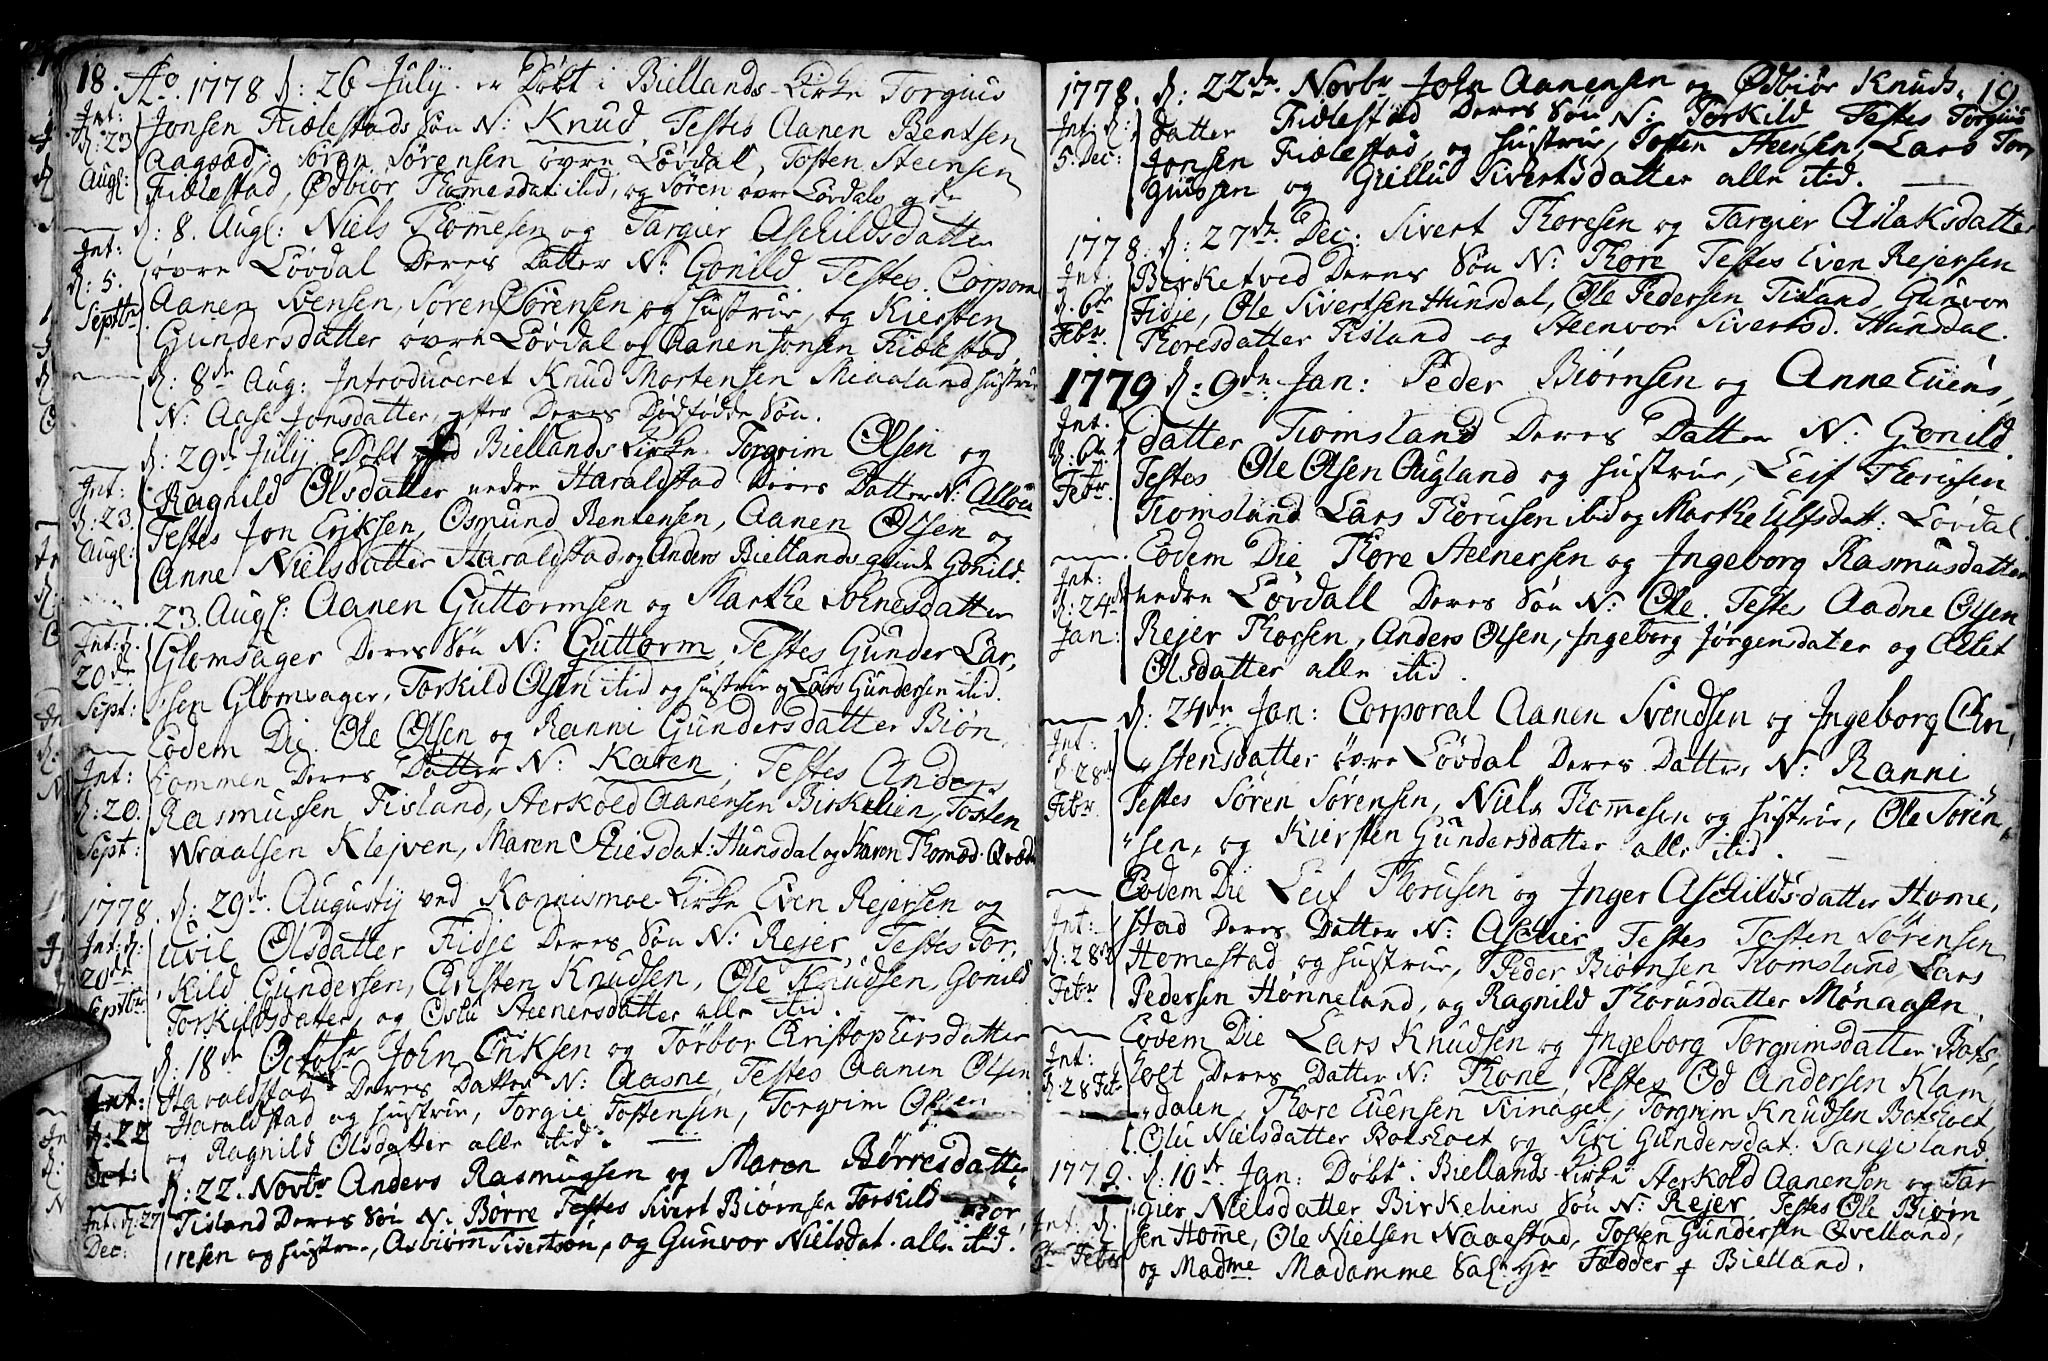 18. Ao. 1778 d: 26 July. er Døbt i Biellands-Kirke Torguus
Int: Jonsen Fiælestads Søn N: Knud, Testes Aanen Bentsen
d: 23 Aagsæd, Sören Sörensen övre Lövdal, Tosten Steensen
Augl: Fiælestad, Ødbiör Thomesdat: itid, og Sören övre Lövdals
d: 8. Augl: Niels Thomesen og Targier Aschildsdatter
Int: övre Lövdal Deres Datter N: Gonild. Testes. Corporal
d: 5. Aanen Svensen, Sören Sörensen og Hustrue, og Kiersten
Septbr Gundersdatter övre Lövdal og Aanen Jonsen Fiælestad.
d: 8de Aug: Introduceret Knud Mortensen Meaaland hustrue
N: Aase Jonsdatter, efter Deres Dödfödde Sön.
d: 29de July Döbt Biellands Kirke Torgrim Olsen og
Int: Ragnild Olsdatter nedre Haraldstad Deres Datter N:
d: 23. Testes Jon Eriksen, Osmund Rentensen, Aanen Olsen og
Augl: Anne Nielsdatter Haraldstad og Anders Biellands-qvinde Gonild.
23. Augl: Aanen Guttormsen og Marthe Johnesdatter
Int: d. Glomsager Deres Sön N: Guttorm, Testes Gunder Lar,
20de sen Glomsager, Torkild Olsen itid og Hustrue og Lars Gundersen itid.
Sept:
Eodem Die. Ole Olsen og Ranni Gundersdatter Biön,
Int: kommen Deres Datter N: Karen, Testes Anders
d: 20. Rasmussen Fisland, Herkold Aanensen Birkelien, Tosten
Sept: Wraalsen Klejven, Maren Hunsdal og Karen
1778. d: 29de. Augusty ved Konnismoe-Kirke Even Rejersen og
Int: d: Uvil Olsdatter Fidje Deres Sön N: Rejer, Testes Tor,
20de kild Gundersen, Christen Knudsen, Ole Knudsen, Gonild
Septbr Torkildsdatter, og Oslu Steenersdatter alle itid.
d: 18de Octobr John Eriksen og Törbor Christophersdatter
Int: Haraldstad Deres Datter N: Aasne, Testes Aanen Olsen
d: 22 Haraldstad og Hustrue, Torgie Tostensen, Torgrim Olsen
Oct: og Ragnild Olsdatter alle itid.
d: 22. Novbr Anders Rasmussen og Maren Börresdatter
Int: d: 27 Tisland Deres Sön N. Börre Testes Sivert Biörnsen Torskild
Dec: resen og Hustrue, Asbiörn Sivertsön, og Gunvor Nielsdat. alle itid.
1778. d: 22de. Novbr John Aanensen og Ødbiör Knuds, 19
Int: d: datter Fiælestad Deres Sön N: Torkild Testes Torguus
5. Dec: Jonsen Fiælestad og Hustrue, Tosten Steensen, Lars Tor
guussen og Grillu Sivertsdatter alle itid.
1778. d: 27de Dec: Sivert Thoresen og Targier Aslaksdatter
Int: Birketved Deres Sön N: Thore Testes Even Rejersen
d. 6te Fidje, Ole Sivertsen Hunsdal, Ole Pedersen Tisland, Gunvor
Febr. Thoresdatter Tisland og Steenvor Sivertsd. Hunsdal.
1779 d: 9de: Jan: Peder Biørnsen og Anne Evens,
Int. datter Tiomsland Deres Datter N: Gonild
Testes Ole Olsen Ougland og Hustrue, Leif Thorusen
Febr. Tiomsland Lars Thorusen itid og Marthe Ulfsdatt: Lövdal.
Eodem Die Thore Steenersen og Ingeborg Rasmusdatter
Int: nedre Lövdall Deres Sön N: Ole. Testes Aadne Olsen
d: 24de Rejer Thorsen, Anders Olsen, Ingeborg Jörgensdater og Allet
Jan: Olsdatter alle itid.
d: 24de Jan: Corporal Aanen Svendsen og Ingeborg Chri,
Int: stensdatter övre Lövdal Deres Datter N: Ranni
d: 28de Testes Sören Sörensen, Niels Thomesen og Hustrue, Ole Sören,
Febr sen, og Kiersten Gundersdatter alle itid.
Eodem Die Leif Thorusen og Inger Aschildsdatter Home,
Int: stad Deres Datter N: Aschier, Testes Tosten Sörensen
d: 28de Homestad og Hustrue, Peder Biörnsen Tiomsland, Lars
Febr Pedersen Hönneland, og Ragnild Thorusdatter Mönaasen.
Eodem Die Lars Knudsen og Ingeborg Torgrimsdatter Rots,
Int: koet Deres Datter N: Thone, Testes Od Andersen Klam,
d: 28 Febr dalen, Thore Evensen Skinagel, Torgrim Knudsen Rotskoet,
Olu Nielsdatter Rotskoet og Siri Gundersdat: Langesland.
1779. d: 10de Jan: Döbt i Biellands-Kirke Herkold Aanensen og Tar
Int: d. gier Nielsdatter Birkeliens Sön N: Rejer Testes Ole Biörn
Febr sen Homme, Ole Nielsen Naagstad, Tosten Gundersen Qvelland,
og Madme Madamme Sal. Hr Fædder Bielland.